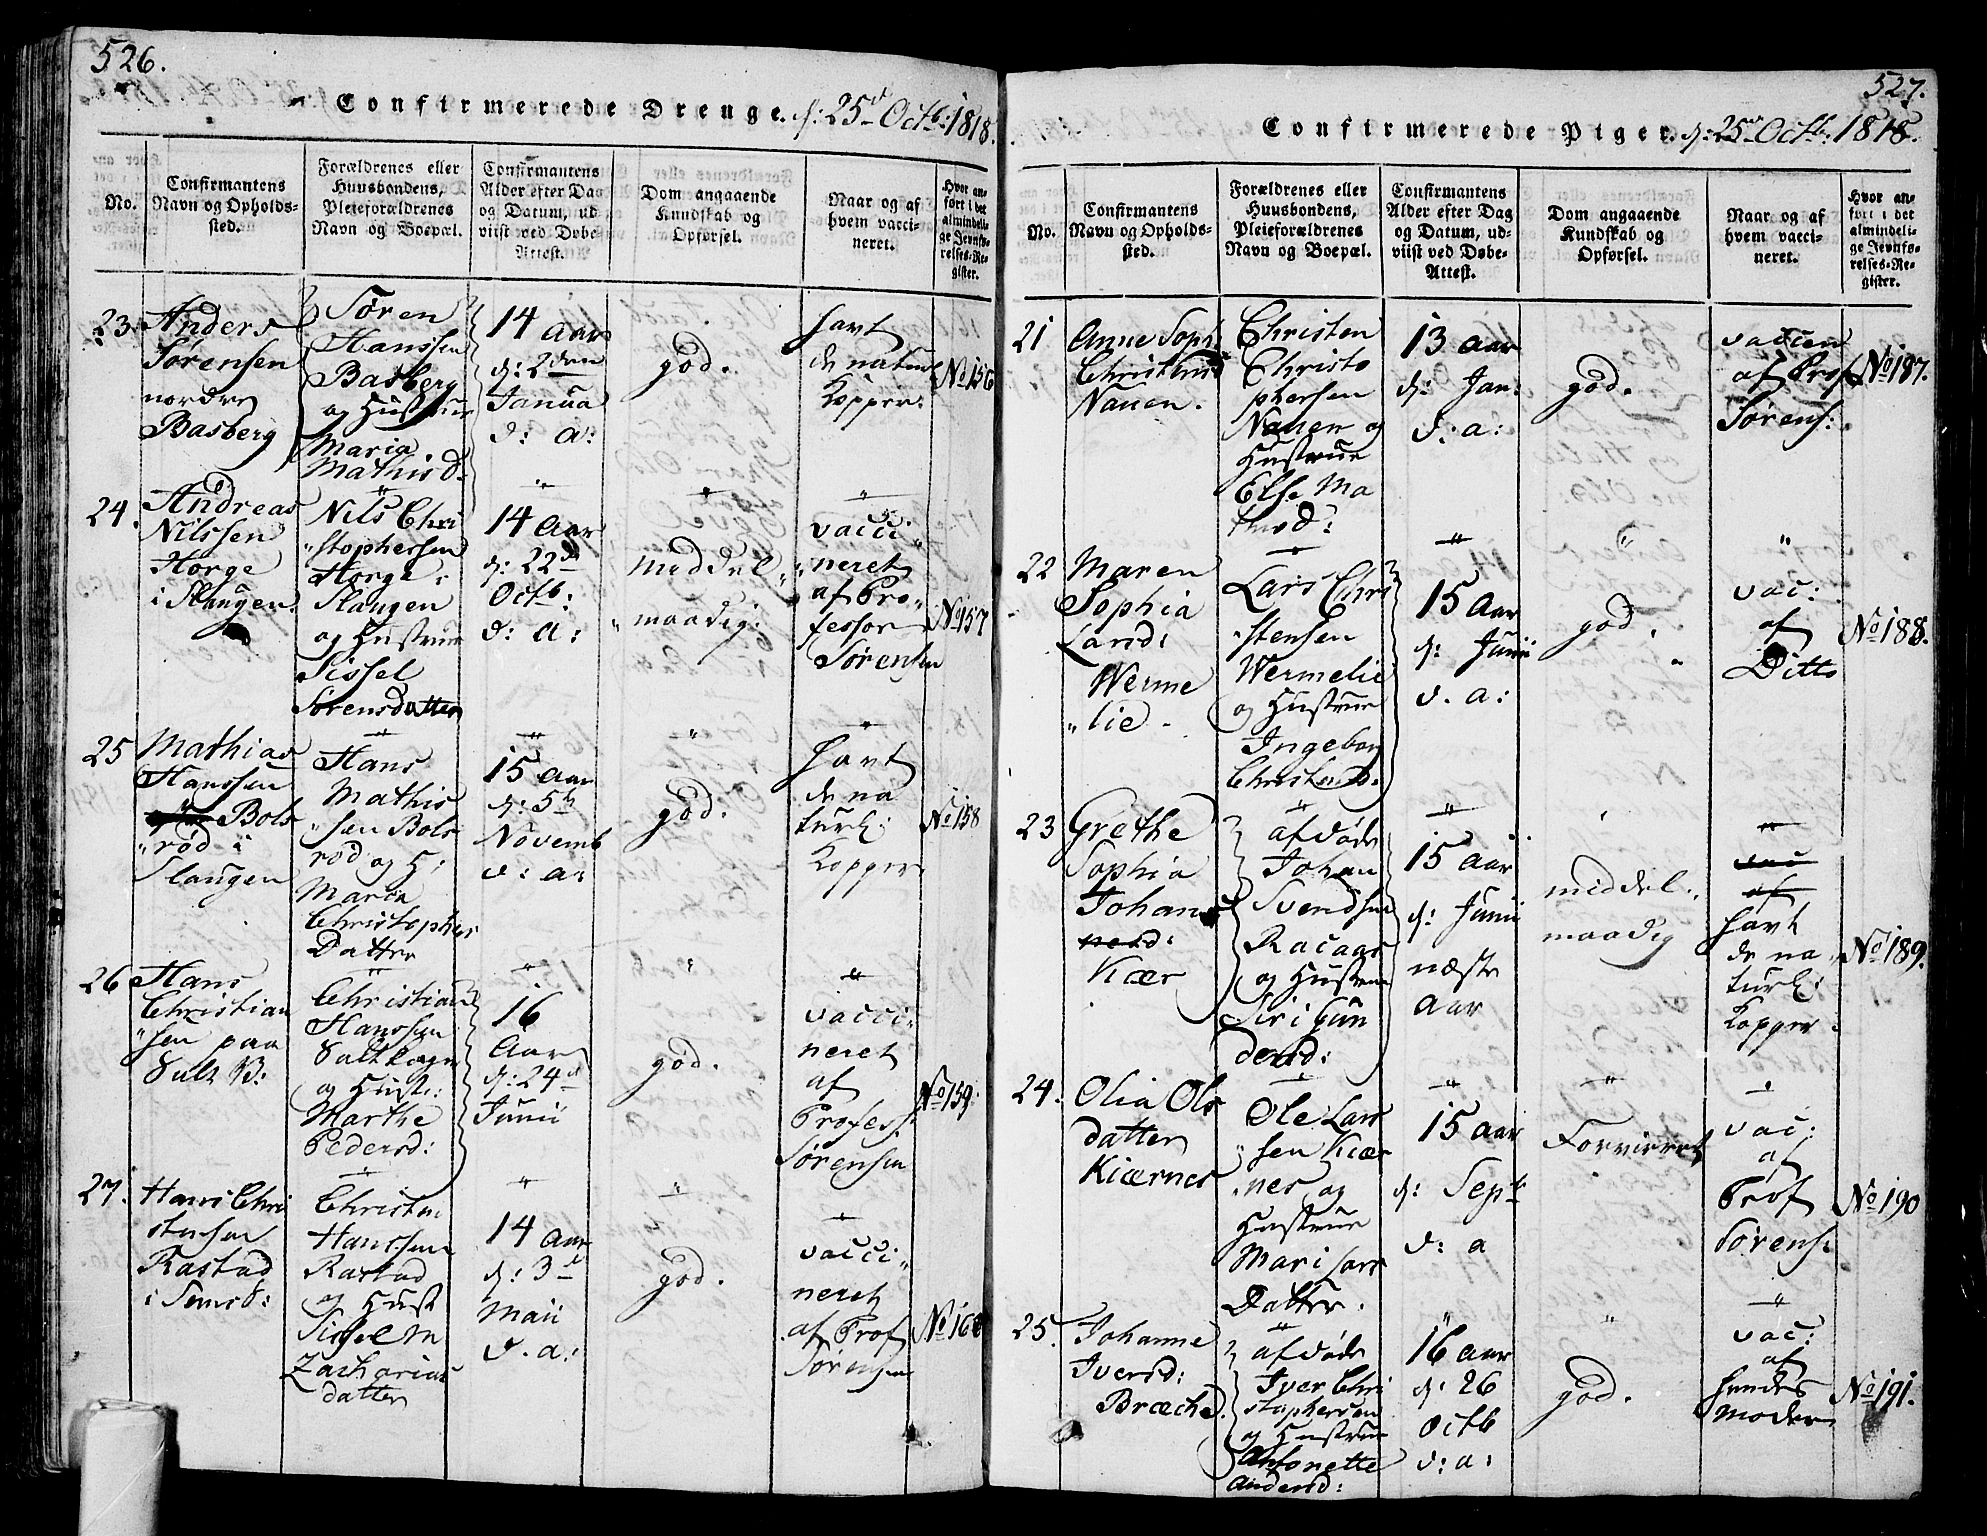 526.
Confirmerede Drenge. d: 25de Octb: 1818.
No.
Confirmantens
Navn og Opholds-
sted.
Forældrenes eller
Huusbondens,
Pleieforældrenes
Navn og Boepæl.
Confirmantens
Alder efter Dag
og Datum, ud-
viist ved Døbe-
Attest.
Dom angaaende
Kundskab og
Opførsel.
Naar og af
hvem vacci-
neret.
Hvor an-
ført i det
almindeli-
ge Jevnfø-
relses-Re-
gister.
23.
Anders
Sørensen
nordre
Basberg
Søren
Hanssen
Basberg
og Hustrue
Maria
Mathisd.
14 Aar
d: 2den
Janua
d: a:
god.
havt
de naturl
Kopper.
No 156
24.
Andreas
Nilssen
Horge
i Slangen.
Nils Chri
"stophersen
Horge i
Slangen
og Hustrue
Sissel
Sørensdatter
14 Aar
d: 22de
Octb:
d: a:
middel
"maadig:
vacci
"neret
af Pro
fessor
Sørensen
No 157
25
Mathias
Hanssen
Bols
"rød i
Slangen
Hans
Mathis
"sen Bols
rød og H:
Maria
Christopher
Datter
15 Aar
d: 5te
Novemb
d: a:
god.
havt
de na
turl:
Kopper
No 158
26
Hans
Christian
"sen paa
Salt B:
Christian
Hanssen
Saltkoger
og Hustr:
Marthe
Pedersd:
16
Aar
d: 24de
Junii
god.
vacci
neret
af
Profess:
Sørensen
No 159.
27.
Hans Chri
stensen
Rastad
i Semsb:
Christen
Hanssen
Rastad
og Hust
Sissel M
Zacharias
datter
14 Aar
d: 3de
Maii
d. a:
god.
vacci
neret
af Prof
Sørensen
No 160
527.
Confirmerede Piger. d: 25de Octb: 1818.
No.
Confirmantens
Navn og Opholds-
sted.
Forældrenes eller
Huusbondens,
Pleieforældrenes
Navn og Boepæl.
Confirmantens
Alder efter Dag
og Datum, ud-
viist ved Døbe-
Attest.
Dom angaaende
Kundskab og
Opførsel.
Naar og af
hvem vacci-
neret.
Hvor an-
ført i det
almindeli-
ge Jevnfø-
relses-Re-
gister.
21
Anne Soph.
Nauen.
Christen
Christo
phersen
Nauen og
Hustrue
Else Ma
thisd:
13 Aar
d: Jan:
d: a:
god.
vaccin
af Prof
Sørens:
No 187.
22
Maren
Sophia
Larsd:
Werme
"lie.
Lars Chri
"stensen
Wermelie
og Hustrue
Ingeborg
Christensd.
15 Aar
d: Junii
d. a:
god.
vac:
af
Ditto
No 188.
23
Grethe
Sophia
Johan
nesd:
Kiær
afdøde
Johan
Svendsen
Racaas
og Hustrue
Siri Gun
dersd:
15 Aar
d: Junii
næste
Aar
middel
maadig
vac
af
havt
de na
turl:
Kopper
No 189.
24.
Olia Ols
datter
Kiærnes
Ole Lars
"sen Kiær
"nes og
Hustrue
Mari Lars
Datter.
15 Aar
d: Septb
d: a
Forvirret
vac:
af
Prof
Sørens:
No 190
25.
Johanne
Iversd:
Bræche.
afdøde
Iver Chri
stophersen
og Hustrue
Antonette
Andersd:
16 Aar
d: 26
Octb
d: a:
god.
vac:
af
hendes
Moder
No 191.